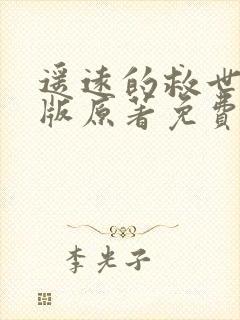 遥远的救世
版原著免费
李光子